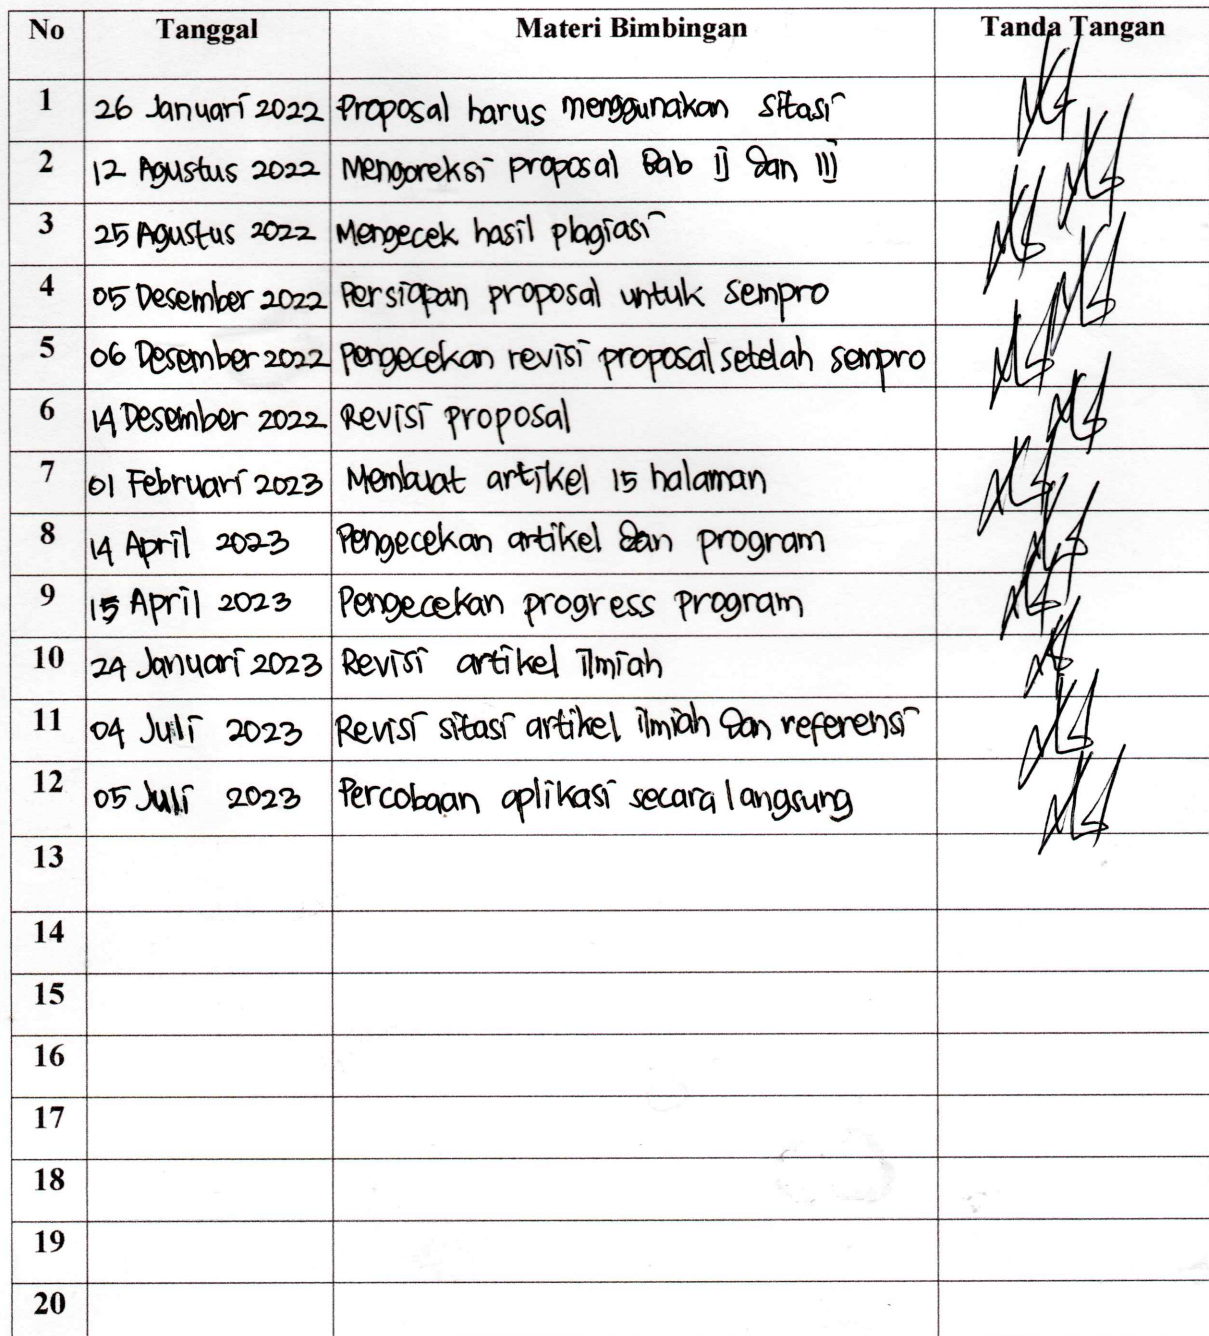 No Tanggal Materi Bimbingan Tanda Tangan
1 26 Januari 2022 Proposal harus menggunakan sitasi
2 12 Agustus 2022 Mengoreksi proposal Bab II dan III
3 25 Agustus 2022 Mengecek hasil plagiasi
4 05 Desember 2022 Persiapan proposal untuk sempro
5 06 Desember 2022 Pengecekan revisi proposal setelah sempro
6 14 Desember 2022 Revisi proposal
7 01 Februari 2023 Membuat artikel 15 halaman
8 14 April 2023 Pengecekan artikel dan program
9 15 April 2023 Pengecekan progress program
10 24 Januari 2023 Revisi artikel ilmiah
11 04 Juli 2023 Revisi sitasi artikel ilmiah dan referensi
12 05 Juli 2023 Percobaan aplikasi secara langsung
13
14
15
16
17
18
19
20